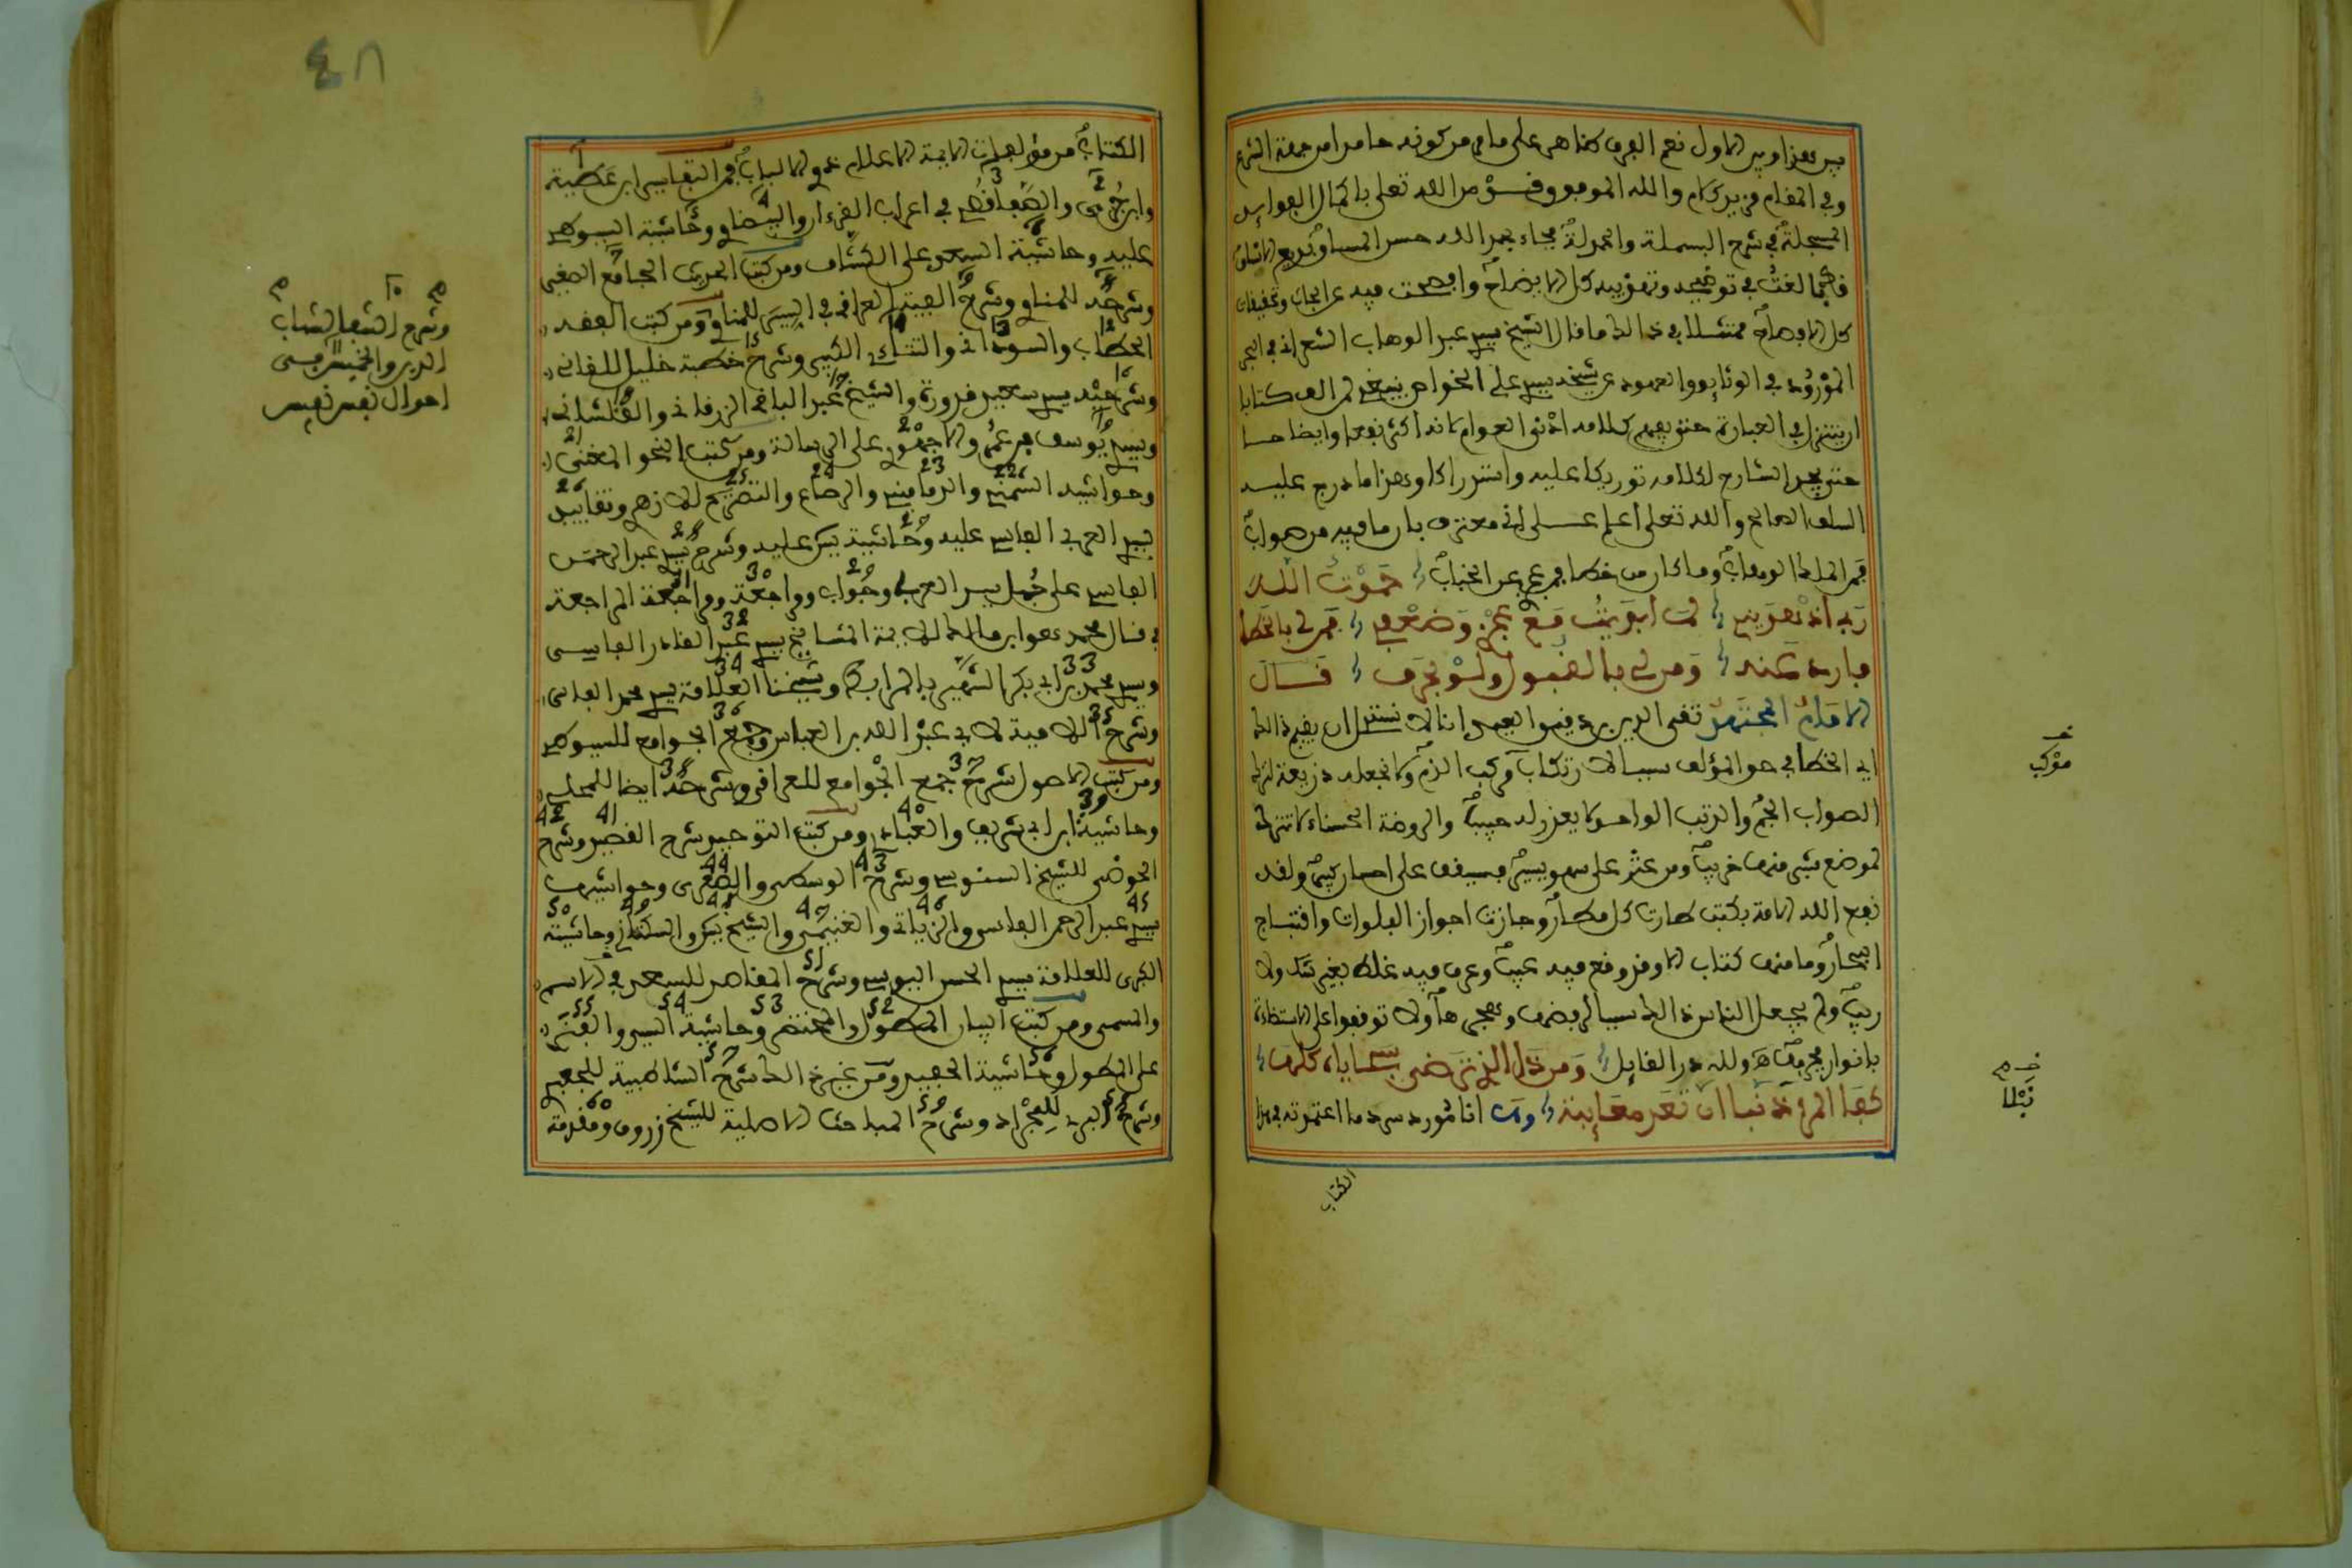 بين هذا وبين الاول نعم الفرق ظاهر على ما مر من كونه حامدا من جهة الشرع
وفي المقام مزيد كلام والله الموفق من الله تعلى باكمال الفوايد
المسجلة في شرح البسملة والحمدلة فجاء بحمد الله حسن المساق بديع الاتساق
فبالغت في توضيحه وتقريبه كل الايضاح وافصحت فيه عن ابحاث وتحقيقات
كل الافصاح ممتثلا في ذالك ما قال الشيخ سيدي عبد الوهاب الشعراني في البحر
المورود في المواثيق والعهود عن شيخه سيدي علي الخواص ينبغي لمن الف كتابا
ان يتنزل في العبارة حتى يفهم كلامه ادنى العوام فانه اكثر نفعا وايضا حسا
حتى يجد الشارح لكلامه توريكا عليه واستدراكا وهذا ما درج عليه
السلف الصالح والله تعلى اعلم على اني معترف بان ما فيه من صواب
فمن الملك الوهاب وما كان من خطا فمن عجز عن الجناب حمدت الله
ربي اذ هداني لما ابديت مع عجزي وضعفي فمن لي بالخطا
فارد عنه ومن لي بالقبول ولو بحرف قال
الامام المجتهد تقي الدين بن دقيق العيد انا لا نستنزل ان يقيم ذالك
اي الخطا في حق المؤلف سببا لارتكاب مركب الذم ولا نجعله ذريعة لترك
الصواب الجم والرتب الواحد لا يعزر له حبيبا والروضة الحسناء لا تترك
لموضع شيء منها خريب ومن عثر على سهو يسير فسيقف على احسان كبير ولقد
نفع الله الامة بكتب طارت كل مطار وجازت اجواز الفلوات واقتباج
البحار وما منها كتاب الا وقد وقع فيه عيب وعرف فيه غلط بغير شك ولا
ريب ولم يجعل الناس ذالك سببا لرفضها وهجرها ولا توقفوا على الاستضاءة
بانوار معرفتها ولله در القايل ومن ذا الذي ترضى سجاياه كلها
كفا المرء نبلا ان تعد معايبه وها انا نورد سرد ما اعتمدته في هذا
الكتاب
مركب
نبلا
٤٨
الكتاب من مؤلفات الايمة الاعلام ذوي الالباب فمن التفاسير ابن عطية
وابن جزي والصفاقسي في اعراب القرءان والبيضاوي وحاشية السيوطي
عليه وحاشية السعد على الكشاف ومن كتب الحديث الجامع الصغير
وشرحه للمناوي وشرح الفية العراقي في السير للمناوي ومن كتب الفقه
الحطاب والسوداني والتتائي الكبير وشرح خطبة خليل للقاني
وشرحه سيدي سعيد قدورة والشيخ عبد الباقي الزرقاني والقلشاني
وسيدي يوسف بن عمر والاجهوري على الرسالة ومن كتب النحو المغني
وحواشيه الشمني والدماميني والرصاع والتصريح للازهري وتقاييد
سيدي العربي الفاسي عليه وحاشية يس عليه وشرح سيدي عبد الرحمن
الفاسي على جمل سيدي العربي وجواب ومراجعة ومراجعة المراجعة
في قتال محمد هوابن مالك للايمة المشايخ سيدي عبد القادر الفاسي
وسيدي محمد بن ابي بكر الشهير بالمرابط وشيخنا العلامة سيدي محمد الفاسي
وشرح اللامية لابي عبد الله بن العباس وجمع الجوامع للسيوطي
ومن كتب الاصول شرح جمع الجوامع للعراقي وشرحه ايضا للمحلي
وحاشيتا ابن ابي شريف والعبادي ومن كتب التوحيد شرح القصيد وشرح
الحوضي للشيخ السنوسي وشرح الوسطى والصغرى وحواشيها
سيدي عبد الرحمن الفاسي والزياتي والغنيمي والشيخ يس والسكتاني وحاشية
الكبرى للعلامة سيدي الحسن اليوسي وشرح المقاصد للسعد في الاسم
والمسمى ومن كتب البيان المطول والمختصر وحاشية السيد والفنري
على المطول وحاشية الحفيد ومن غير ذالك شرح الشاطبية للجعبري
وشرح البردة للعجراد وشرح المباحث الاصلية للشيخ زروق ومقدمة
وشرح الشفا للشهاب
الدين والخميس من
احوال نفس نفيس